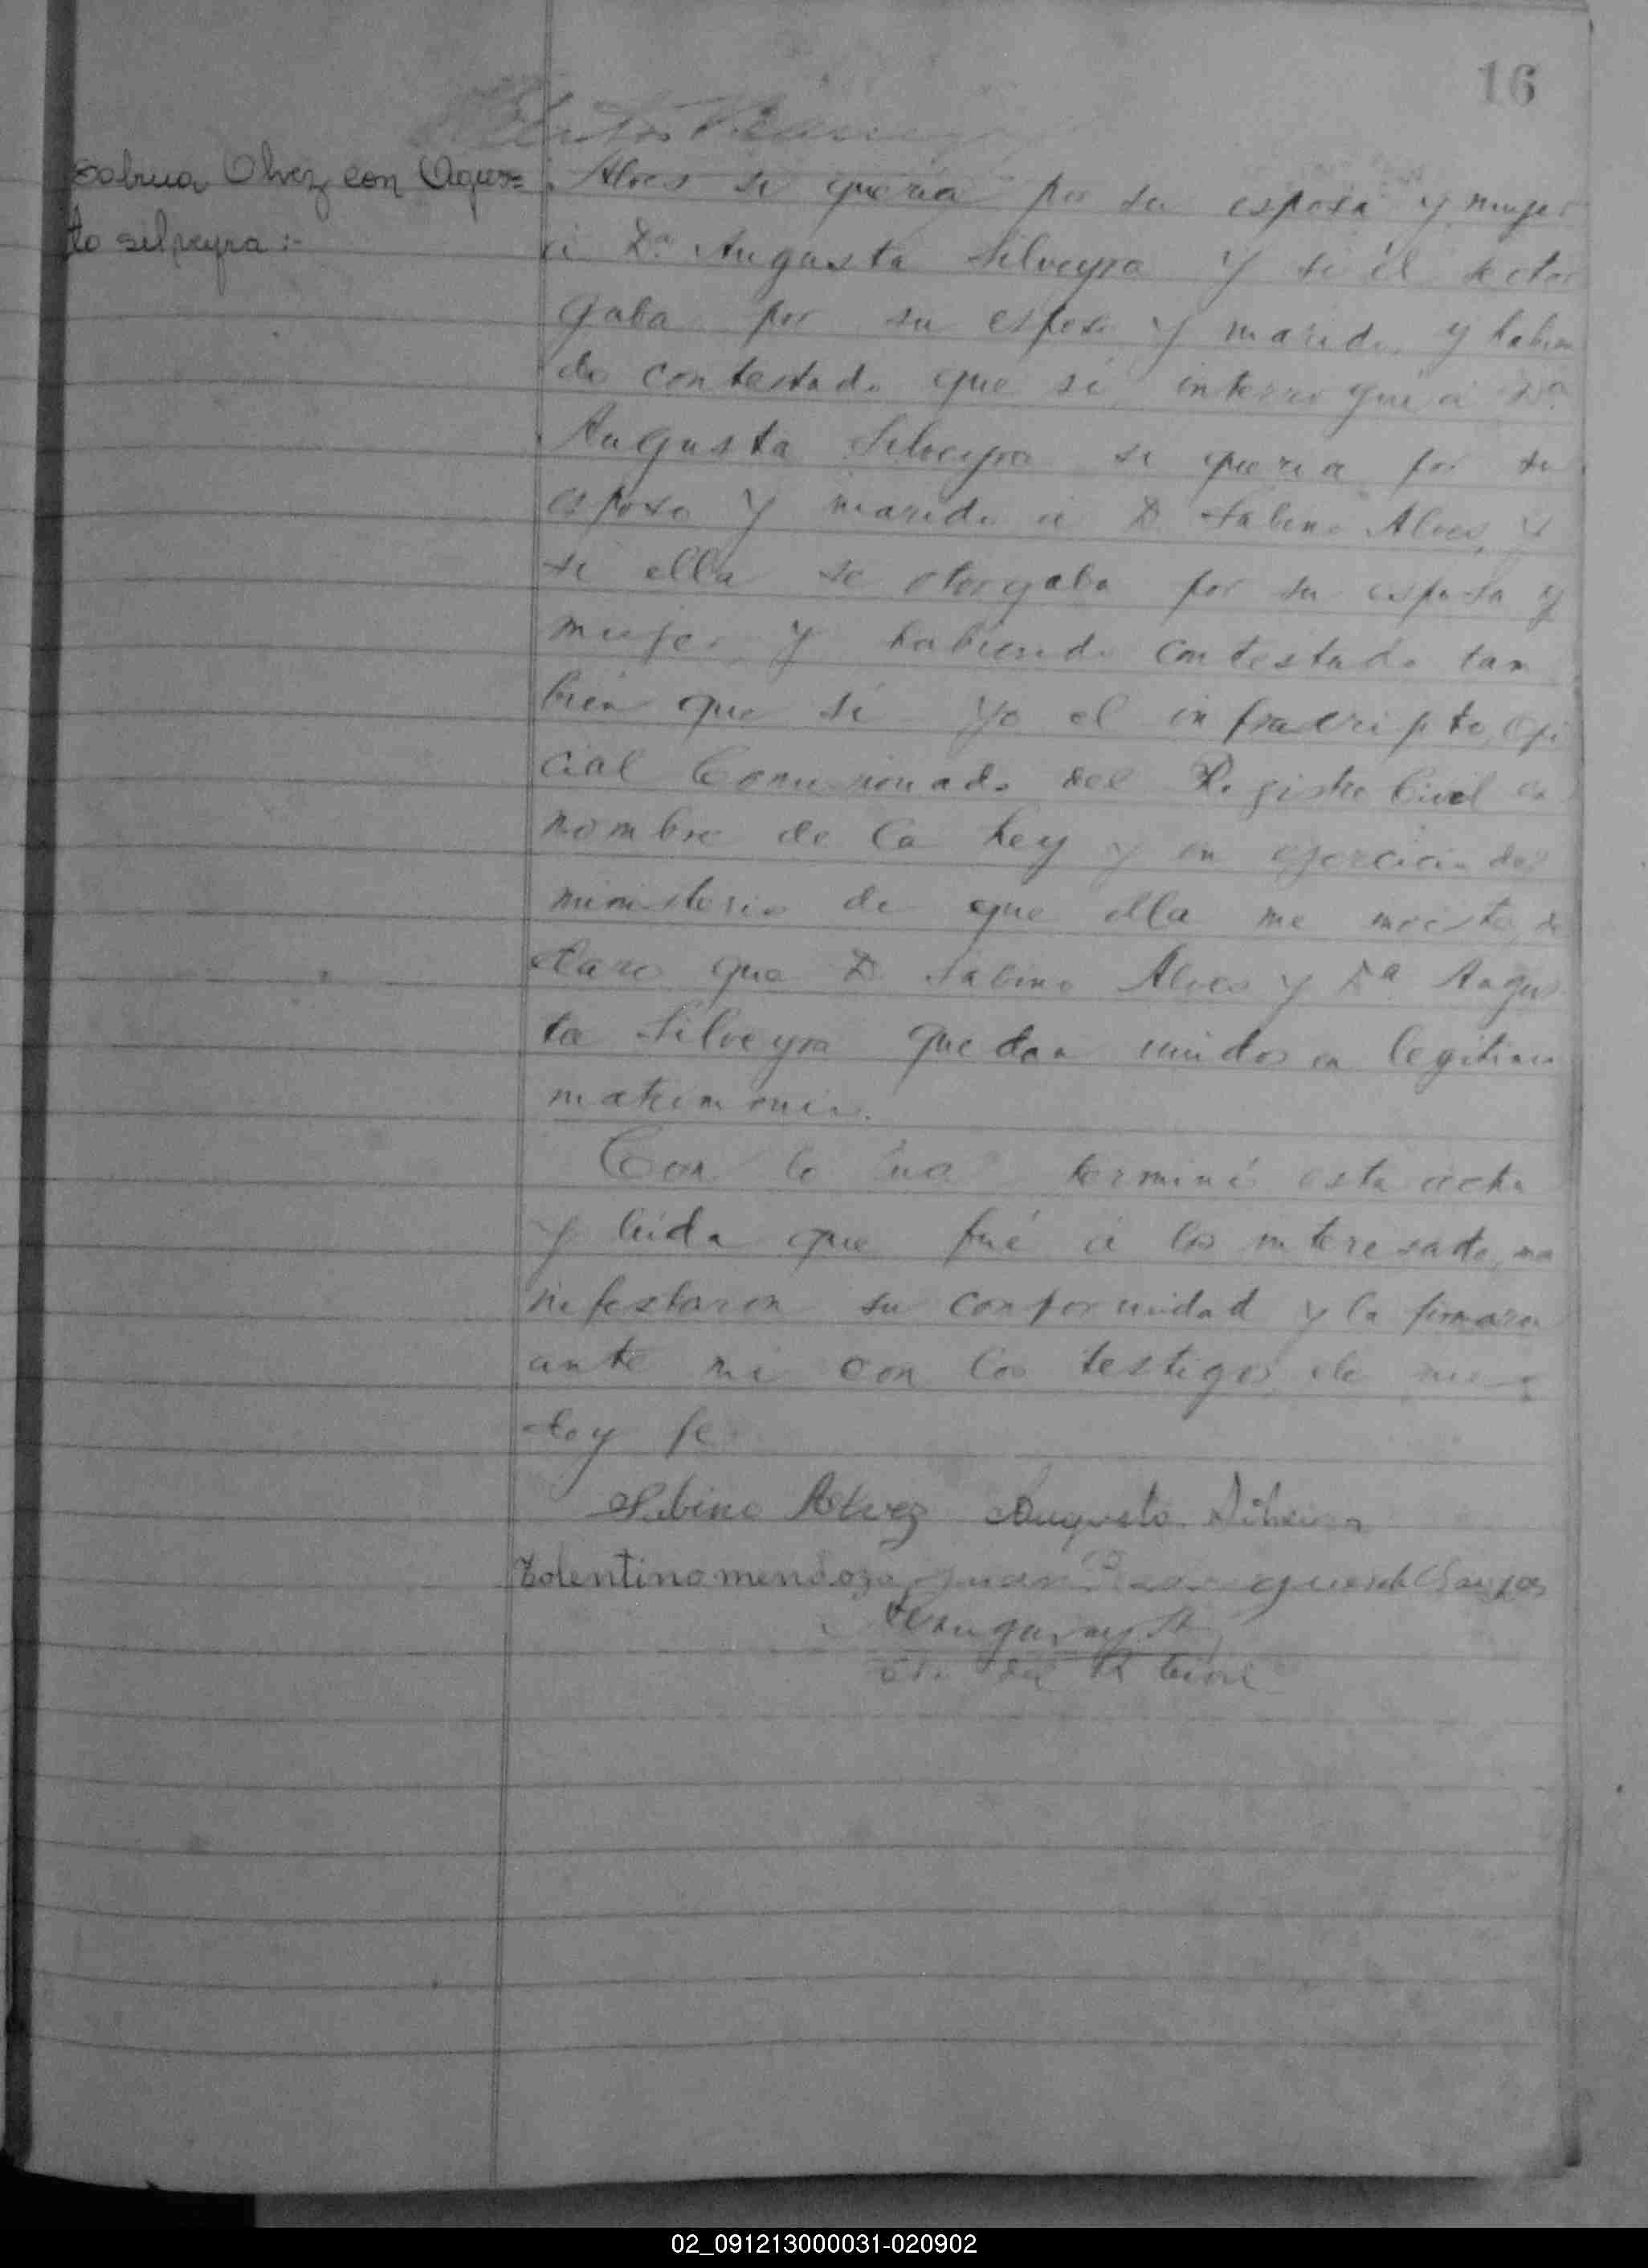 16
Sabino Olvez con Agus=
to silveyra :-
Alves si queria por su esposa y mujer
á Da. Augusta Silveyra y si él se otor
gaba por su esposo y marido, y habien
do contestado que sí, interrogué á Da.
Augusta Silveyra si queria por su
esposo y marido á D. Sabino Alves, y
si ella se otorgaba por su esposa y
mujer y habiendo contestado tam
bién que si yo el infrascripto, Ofi
cial Comisionado del Registro Civil en
nombre de la Ley y en ejercicio del
ministerio de que ella me inviste, de
claro que D Sabino Alves y Da Augus
ta Silveyra quedan unidos en legitimo
matrimonio.
Con lo terminé esta acta
y leida que fué á los interesados, ma
nifestaron su conformidad y la firmaron
ante mi con los testigos de
doy fe
Sabino Alvez Augusta Silveira
Tolentino mendoza
del R Civil
02_091213000031-020902